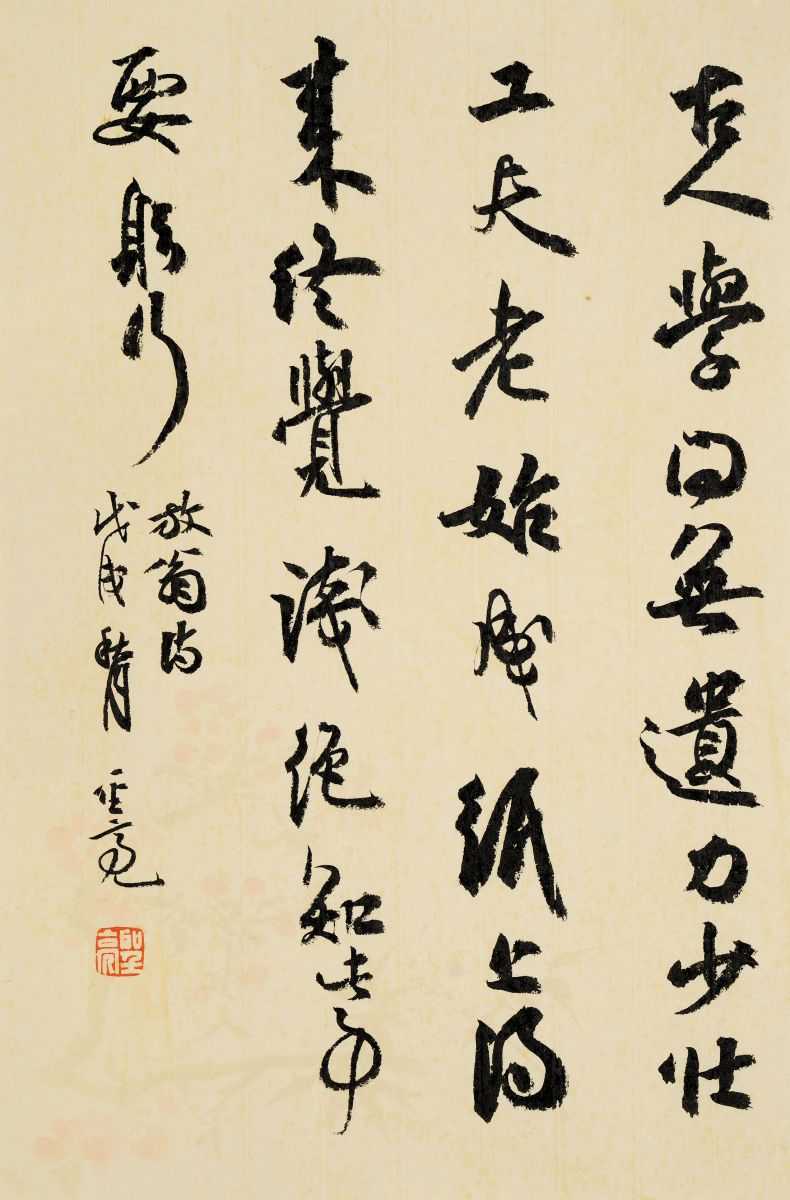 古人學問無遺力少壯
工夫老始成紙上得
來終覺淺絕知此事
要躬行
放翁詩
戊戌
亮